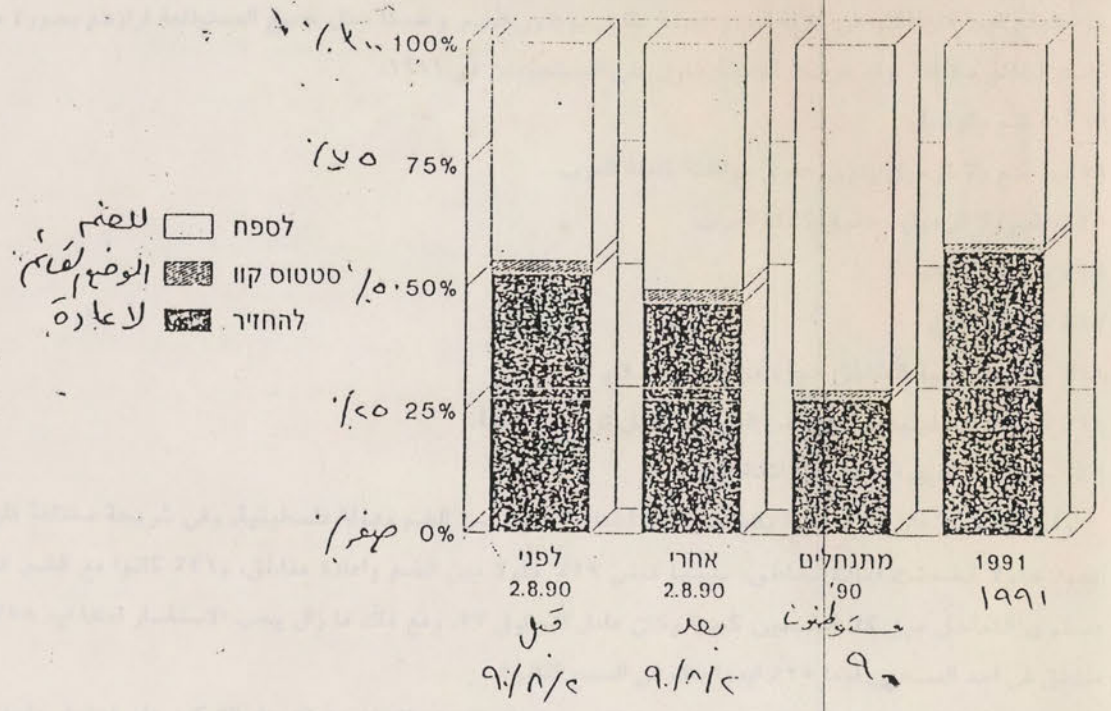 ٪١٠٠ 100%
٪٧٥ 75%
٪٥٠ 50%
٪٢٥ 25%
صفر٪ 0%
للضم לספח
الوضع القائم סטטוס קוו
لاعادة להחזיר
לפני
2.8.90
قبل
٩٠/٨/٢
אחרי
2.8.90
بعد
٩٠/٨/٢
מתנחלים
'90
مستوطنون
٩٠
1991
١٩٩١